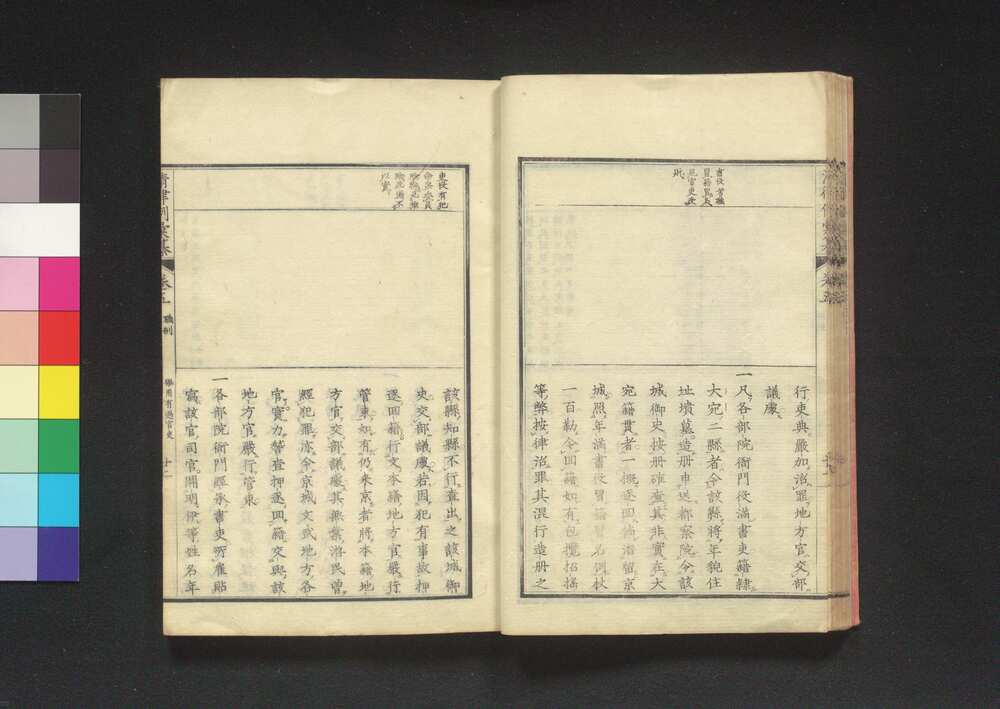 行束典嚴加治罪地方官交部
議處
一凡各部院衙門役滿書吏籍隸
大宛二縣者令該縣將年貌住
址墳墓造册申送都察院令該
城御史按册確查其非實在大
宛籍貫者一概逐回倘潛留京
城照年滿書役冒籍冒名例杖
一百勒令回籍如有包攬招搖
等弊按律治罪其混行造册之
該縣知縣不行查出之該城御
史交部議處若因犯有事故押
逐回籍行文本籍地方官嚴行
管束如有仍來京者將本籍地
方官交部議處其無業游民曾
經犯罪亦令京城文武地方各
官實力稽查押逐回籍交與該
地方官嚴行管束
一各部院衙門經承書吏所雇貼
寫該官司官開明伊等姓名年
清律例彙纂
卷五
職制
舉用有過官吏
十一